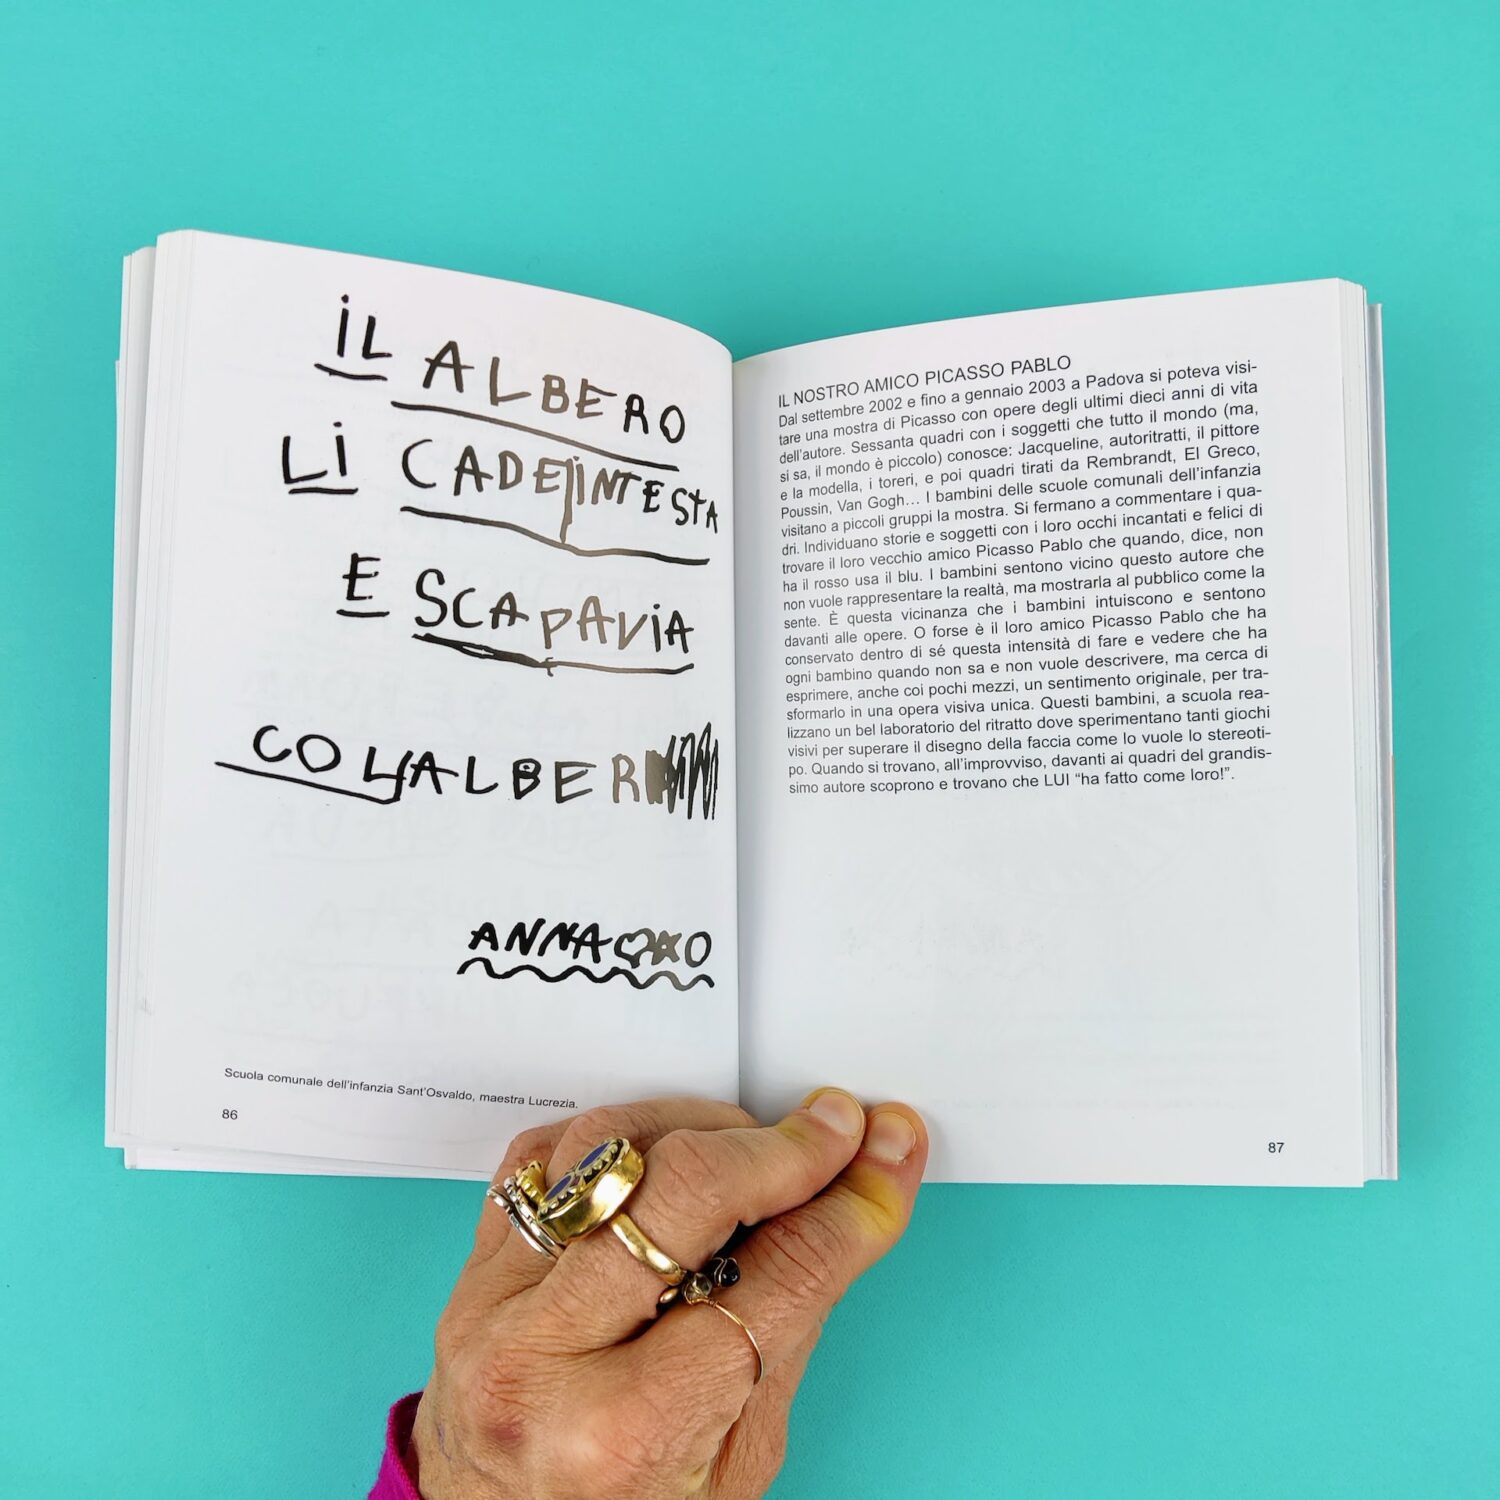 iL ALBERO
Li CADE iNTESTA
E SCAPAViA
CO LALBER
ANNA
Scuola comunale dell'infanzia Sant'Osvaldo, maestra Lucrezia.
86
IL NOSTRO AMICO PICASSO PABLO
Dal settembre 2002 e fino a gennaio 2003 a Padova si poteva visi-
tare una mostra di Picasso con opere degli ultimi dieci anni di vita
dell'autore. Sessanta quadri con i soggetti che tutto il mondo (ma,
si sa, il mondo è piccolo) conosce: Jacqueline, autoritratti, il pittore
e la modella, i toreri, e poi quadri tirati da Rembrandt, El Greco,
Poussin, Van Gogh… I bambini delle scuole comunali dell'infanzia
visitano a piccoli gruppi la mostra. Si fermano a commentare i qua-
dri. Individuano storie e soggetti con i loro occhi incantati e felici di
trovare il loro vecchio amico Picasso Pablo che quando, dice, non
ha il rosso usa il blu. I bambini sentono vicino questo autore che
non vuole rappresentare la realtà, ma mostrarla al pubblico come la
sente. È questa vicinanza che i bambini intuiscono e sentono
davanti alle opere. O forse è il loro amico Picasso Pablo che ha
conservato dentro di sé questa intensità di fare e vedere che ha
ogni bambino quando non sa e non vuole descrivere, ma cerca di
esprimere, anche coi pochi mezzi, un sentimento originale, per tra-
sformarlo in una opera visiva unica. Questi bambini, a scuola rea-
lizzano un bel laboratorio del ritratto dove sperimentano tanti giochi
visivi per superare il disegno della faccia come lo vuole lo stereoti-
po. Quando si trovano, all'improvviso, davanti ai quadri del grandis-
simo autore scoprono e trovano che LUI “ha fatto come loro!”.
87